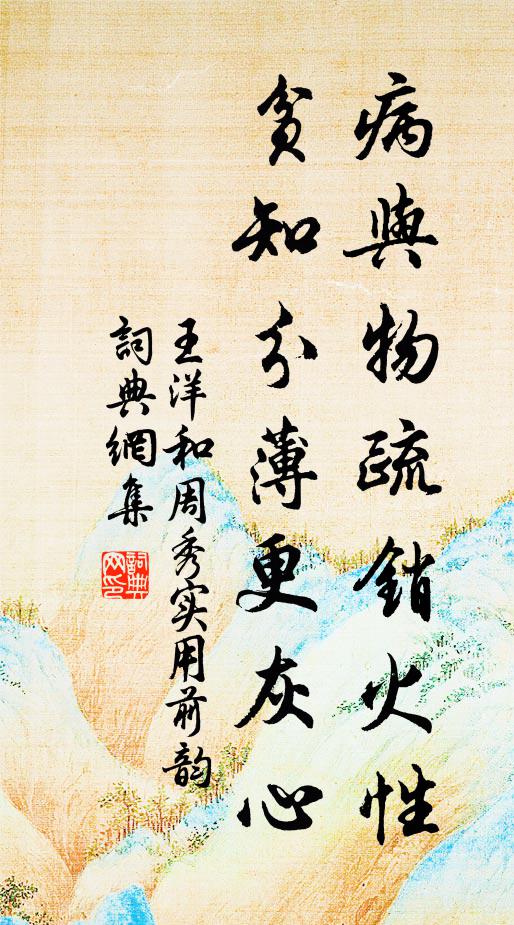 病與物疏銷火性
貧知分薄更灰心
王洋和周秀实用前韵
詞典網集
詞典
网印